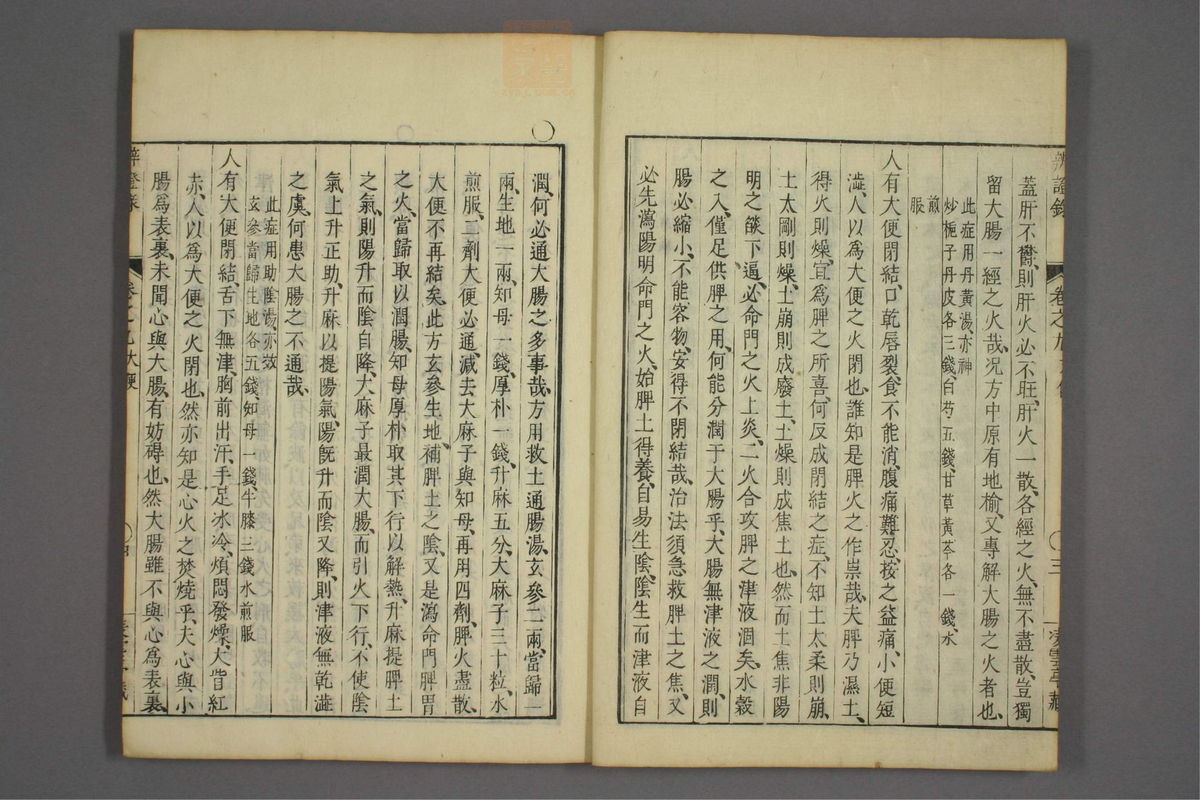 蓋肝不鬱、則肝火必不旺、肝火一散、各經之火、無不盡散、豈獨
留大腸一經之火哉、况方中原有地榆、又專解大腸之火者也、
此症用丹黃湯亦神
炒梔子丹皮各三錢、白芍五錢、甘草黃芩各一錢、水
煎服
人有大便閉結、口乾唇裂、食不能消、腹痛難忍、按之益痛、小便短
澁、人以爲大便之火閉也、誰知是脾火之作祟哉、夫脾乃濕土、
得火則燥、宜爲脾之所喜、何反成閉結之症、不知土太柔則崩、
土太剛則燥、土崩則成廢土、土燥則成焦土也、然而土焦非陽
明之燄下逼、必命門之火上炎、二火合攻、脾之津液涸矣、水穀
之入、僅足供脾之用、何能分潤于大腸乎、大腸無津液之潤、則
腸必縮小、不能容物、安得不閉結哉、治法須急救脾土之焦、又
必先瀉陽明命門之火、始脾土得養、自易生陰、陰生而津液自
辨證錄
卷之九
三
潤、何必通大腸之多事哉、方用救土通腸湯、玄參二兩、當歸一
兩、生地一兩、知母一錢、厚朴一錢、升麻五分、大麻子三十粒、水
煎服、二劑大便必通、減去大麻子與知母、再用四劑、脾火盡散、
大便不再結矣、此方玄參生地、補脾土之陰、又是瀉命門脾胃
之火、當歸取以潤腸、知母厚朴取其下行以解熱、升麻提脾土
之氣、則陽升而陰自降、大麻子最潤大腸、而引火下行、不使陰
氣上升正助、升麻以提陽氣、陽旣升而陰又降、則津液無乾澁
之虞、何患大腸之不通哉、
此症用助陰湯亦效
玄參當歸生地各五錢、知母一錢、牛膝三錢、水煎服
人有大便閉結、舌下無津、胸前出汗、手足冰冷、煩悶發燥、大眥紅
赤、人以爲大便之火閉也、然亦知是心火之焚燒乎、夫心與小
腸爲表裏、未聞心與大腸、有妨碍也、然大腸雖不與心爲表裏、
卷之九大便